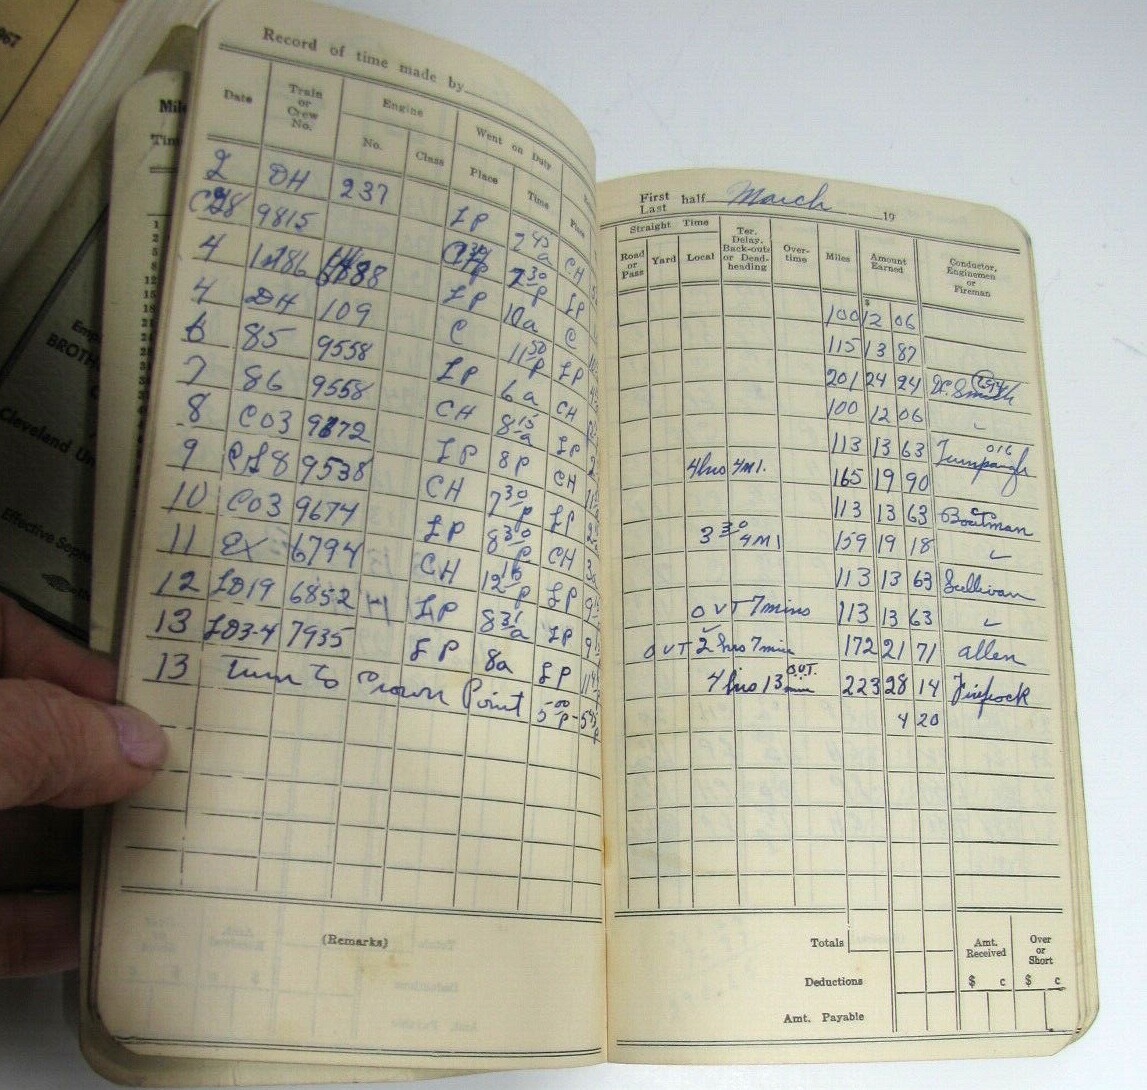 967
Mile
Tim
Emp
BROTH
Cleveland Un
Effective Septe
Record of time made by
Date
Train or Crew No.
Engine
No.
Class
Went on Duty
Place
Time
2 DH 237 LP 2 45 a CH
9815 7 30 p LP
4 LP 10 a C
4 DH 109 C 11 50 p LP
6 85 9558 LP 6 a CH
7 86 9558 CH 8 15 a LP
8 CO3 9672 LP 8 P CH
9 9538 CH 7 30 p LP
10 CO3 9674 LP 8 30 p CH
11 EX 6794 CH 12 15 p LP
12 LD19 6852 LP 8 31 a LP
13 LD3-4 7935 LP 8a LP
13 Turn to Crown Point 5 00 P - 5
(Remarks)
First
Last half March 19
Straight Time
Road or Pass
Yard
Local
Ter. Delay. Back-outs or Dead-heading
Over-time
Miles
Amount Earned
Conductor, Enginemen or Fireman
$
100 12 06
115 13 87
201 24 24
100 12 06 "
113 13 63
4 hrs 4 M1. 165 19 90
113 13 63 Boatman
3 30 4 M1 159 19 18 "
113 13 63 Sullivan
OVT 7 mins 113 13 63 "
OVT 2 hrs 7 min 172 21 71 allen
4 hrs 13 min OVT. 223 28 14
4 20
Totals
Deductions
Amt. Payable
Amt. Received
Over or Short
$ c $ c